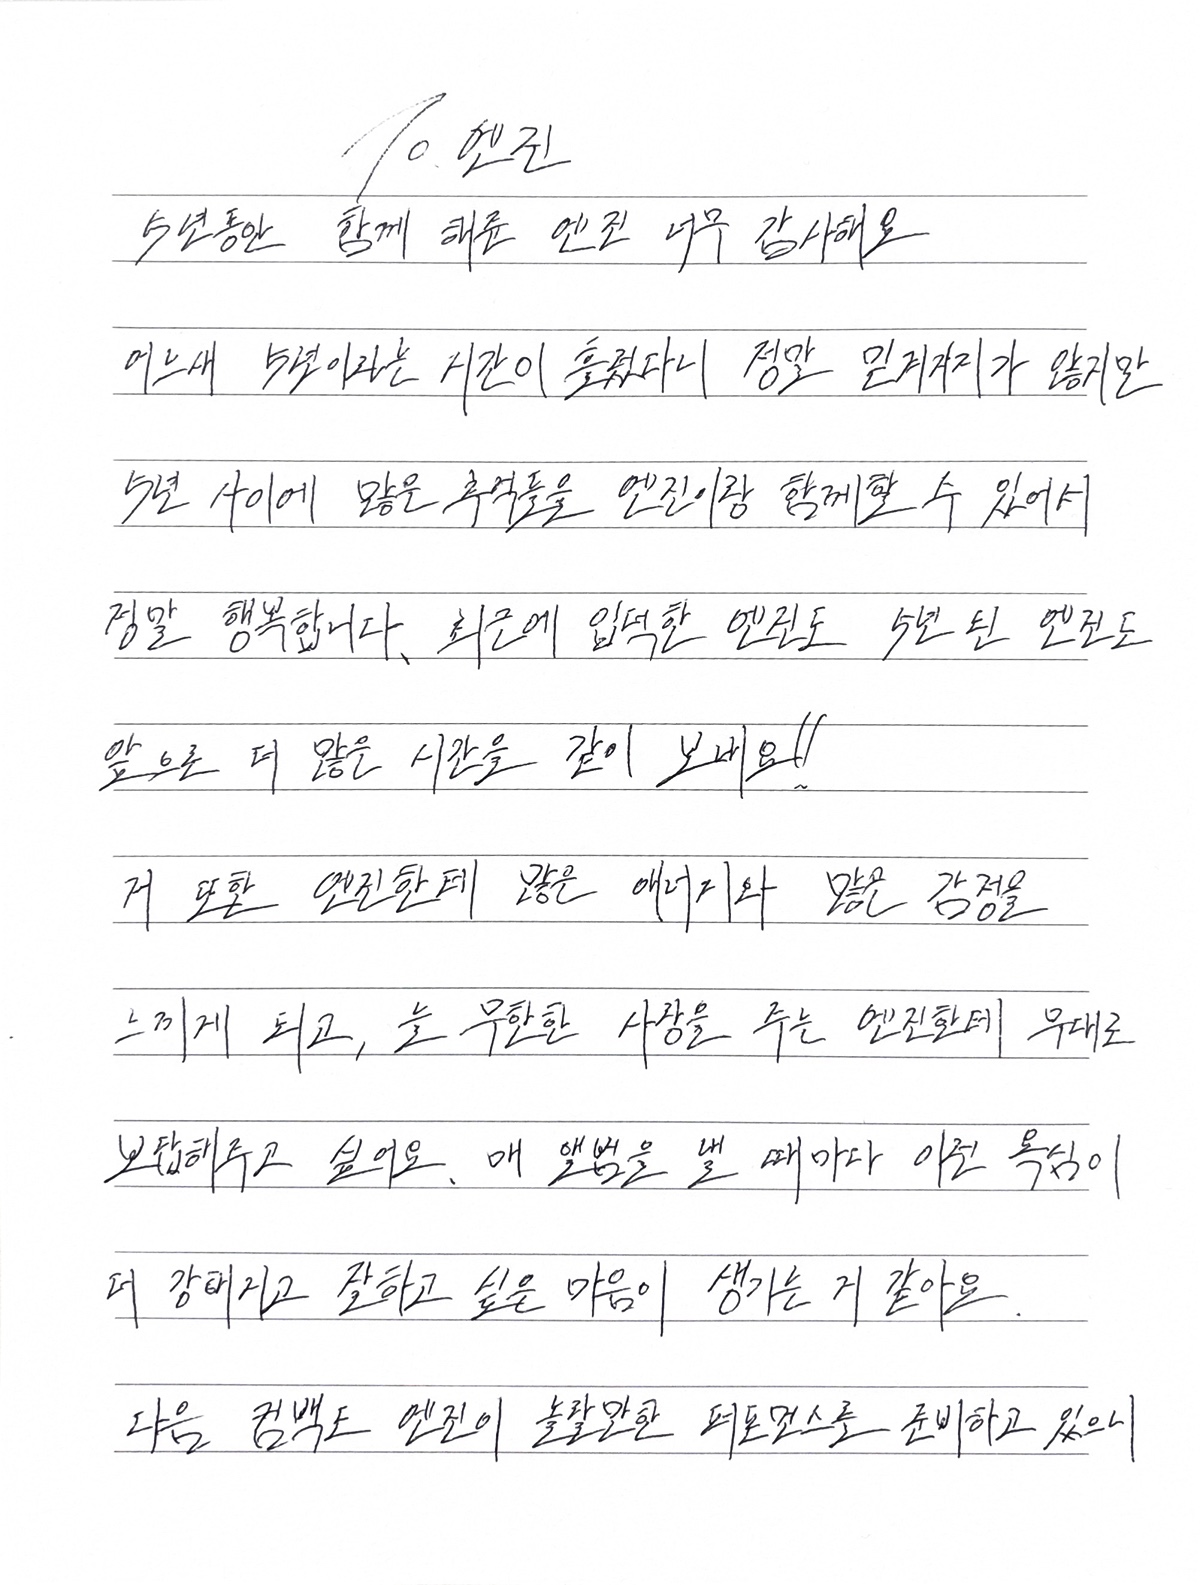 To. 엔진
5년동안 함께 해준 엔진 너무 감사해요
어느새 5년이라는 시간이 흘렀다니 정말 믿겨지지가 않지만
5년 사이에 많은 추억들을 엔진이랑 함께할 수 있어서
정말 행복합니다. 최근에 입덕한 엔진도 5년 된 엔진도
앞으로 더 많은 시간을 같이 보내요!!
저 또한 엔진한테 많은 에너지와 많은 감정을
느끼게 되고, 늘 무한한 사랑을 주는 엔진한테 무대로
보답해주고 싶어요. 매 앨범을 낼 때마다 이런 욕심이
더 강해지고 잘하고 싶은 마음이 생기는 거 같아요.
다음 컴백도 엔진이 놀랄만한 퍼포먼스를 준비하고 있으니